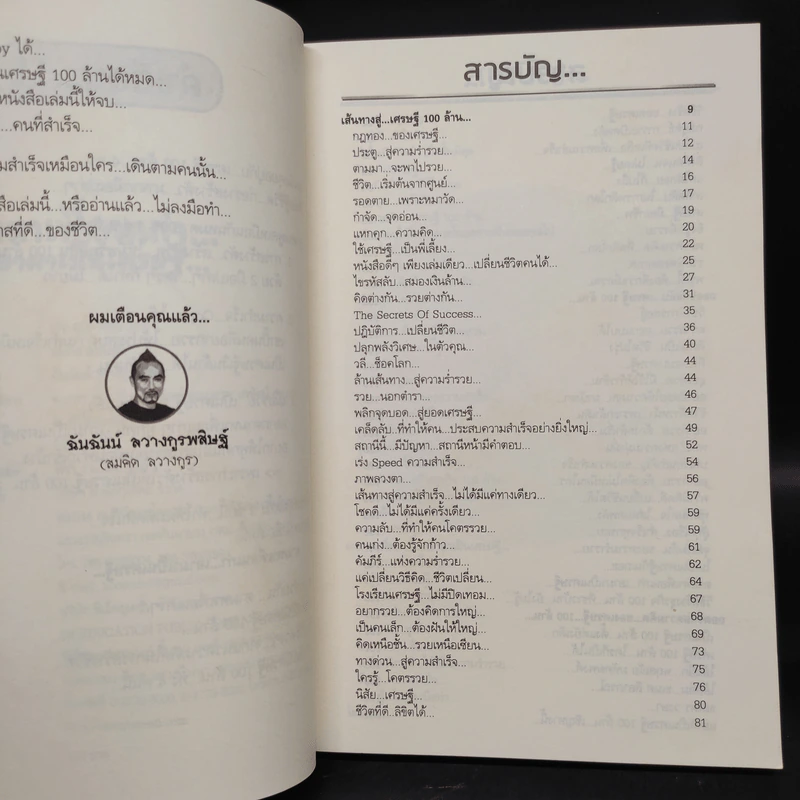 by ได้...
นเศรษฐี 100 ล้านได้หมด...
หนังสือเล่มนี้ให้จบ...
...คนที่สำเร็จ...
มสำเร็จเหมือนใคร...เดินตามคนนั้น...
สือเล่มนี้...หรืออ่านแล้ว...ไม่ลงมือทำ...
าสที่ดี...ของชีวิต...
ผมเตือนคุณแล้ว...
ฉันฉันน์ ลวางกูรพสิษฐ์
(สมคิด ลวางกูร)
สารบัญ...
เส้นทางสู่...เศรษฐี 100 ล้าน... 9
กฎทอง...ของเศรษฐี... 11
ประตู...สู่ความร่ำรวย... 12
ตามมา...จะพาไปรวย... 14
ชีวิต...เริ่มต้นจากศูนย์... 16
รอดตาย...เพราะหมาวัด... 17
กำจัด...จุดอ่อน... 19
แหกคุก...ความคิด... 20
ใช้เศรษฐี...เป็นพี่เลี้ยง... 22
หนังสือดีๆ เพียงเล่มเดียว...เปลี่ยนชีวิตคนได้... 25
ไขรหัสลับ...สมองเงินล้าน... 27
คิดต่างกัน...รวยต่างกัน... 31
The Secrets Of Success... 35
ปฏิบัติการ...เปลี่ยนชีวิต... 36
ปลุกพลังวิเศษ...ในตัวคุณ... 40
วลี...ช็อคโลก... 44
ล้านเส้นทาง...สู่ความร่ำรวย... 44
รวย...นอกตำรา... 46
พลิกจุดบอด...สู่ยอดเศรษฐี... 47
เคล็ดลับ...ที่ทำให้คน...ประสบความสำเร็จอย่างยิ่งใหญ่... 49
สถานีนี้...มีปัญหา...สถานีหน้ามีคำตอบ... 52
เร่ง Speed ความสำเร็จ... 54
ภาพลวงตา... 56
เส้นทางสู่ความสำเร็จ...ไม่ได้มีแค่ทางเดียว... 57
โชคดี...ไม่ได้มีแค่ครั้งเดียว... 59
ความลับ...ที่ทำให้คนโคตรรวย... 59
คนเก่ง...ต้องรู้จักก้าว... 61
คัมภีร์...แห่งความร่ำรวย... 62
แค่เปลี่ยนวิธีคิด...ชีวิตเปลี่ยน... 64
โรงเรียนเศรษฐี...ไม่มีปิดเทอม... 67
อยากรวย...ต้องคิดการใหญ่... 68
เป็นคนเล็ก...ต้องฝันให้ใหญ่... 69
คิดเหนือชั้น...รวยเหนือเซียน... 73
ทางด่วน...สู่ความสำเร็จ... 75
ใครรู้...โคตรรวย... 76
นิสัย...เศรษฐี... 80
ชีวิตที่ดี..ลิขิตได้... 81